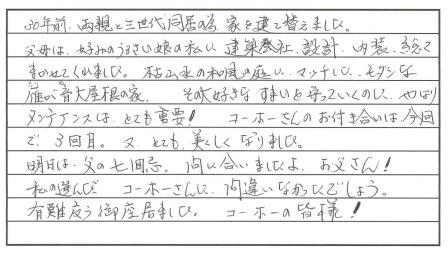 30年前、両親と三世代同居の為、家を建て替えました。
父母は、好みのうるさい娘の私に、建築会社、設計、内装、総て
まかせてくれました。枯山水の和風の庭に、マッチした、モダンな
大屋根の家。その大好きな すまいを守っていくのに、やはり
メンテナンスは、とても重要！ コーホーさんのお付き合いは、今回
で 3回目。又、とても、美しくなりました。
明日は、父の七回忌。間に合いましたよ、お父さん！
私の選んだ コーホーさんに、間違いなかったでしょう。
有難う御座居ました。 コーホーの皆様！